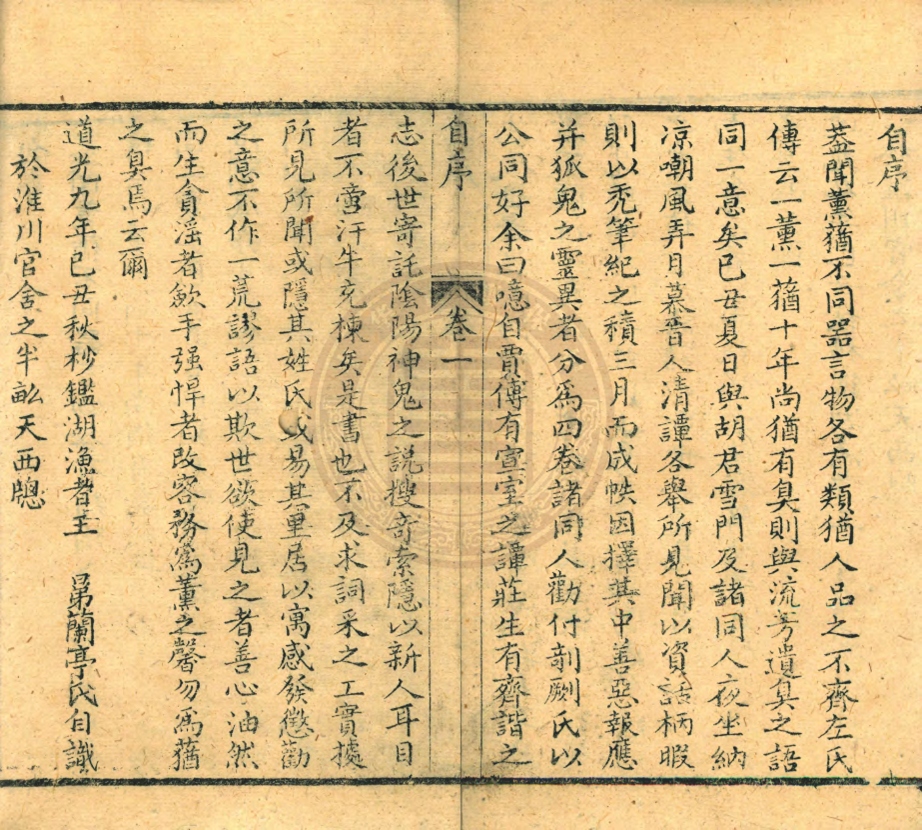 自序
葢聞薰蕕不同器言物各有類猶人品之不齊左氏
傳云一薰一蕕十年尚猶有臭則與流芳遺臭之語
同一意矣己丑夏日與胡君雪門及諸同人夜坐納
凉嘲風弄月慕晉人清譚各舉所見聞以資話柄暇
則以禿筆紀之積三月而成帙因擇其中善惡報應
并狐鬼之靈異者分爲四卷諸同人勸付剞劂氏以
公同好余曰噫自賈傅有宣室之譚莊生有齊諧之
自序
卷一
志後世寄託陰陽神鬼之説搜奇索隱以新人耳目
者不啻汗牛充棟矣是書也不及求詞采之工實據
所見所聞或隱其姓氏或易其里居以寓感發懲勸
之意不作一荒謬語以欺世欲使見之者善心油然
而生貪淫者歛手强悍者改容務爲薰之馨勿爲蕕
之臭焉云爾
道光九年己丑秋杪鑑湖漁者王 蘭亭氏自識
於淮川官舍之半畝天西牕